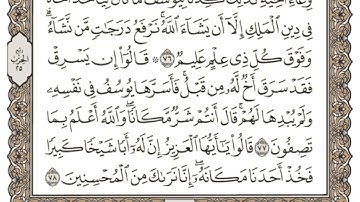 فِى دِينِ ٱلْمَلِكِ إِلَّآ أَن يَشَآءَ ٱللَّهُ ۚ نَرْفَعُ دَرَجَـٰتٍ مَّن نَّشَآءُ ۗ
وَفَوْقَ كُلِّ ذِى عِلْمٍ عَلِيمٌ ٧٦ ۞ قَالُوٓا۟ إِن يَسْرِقْ
فَقَدْ سَرَقَ أَخٌ لَّهُۥ مِن قَبْلُ ۚ فَأَسَرَّهَا يُوسُفُ فِى نَفْسِهِۦ
وَلَمْ يُبْدِهَا لَهُمْ ۚ قَالَ أَنتُمْ شَرٌّ مَّكَانًا ۖ وَٱللَّهُ أَعْلَمُ بِمَا
تَصِفُونَ ٧٧ قَالُوا۟ يَـٰٓأَيُّهَا ٱلْعَزِيزُ إِنَّ لَهُۥٓ أَبًا شَيْخًا كَبِيرًا
فَخُذْ أَحَدَنَا مَكَانَهُۥٓ ۖ إِنَّا نَرَىٰكَ مِنَ ٱلْمُحْسِنِينَ ٧٨
ربع
الحزب
٢٥